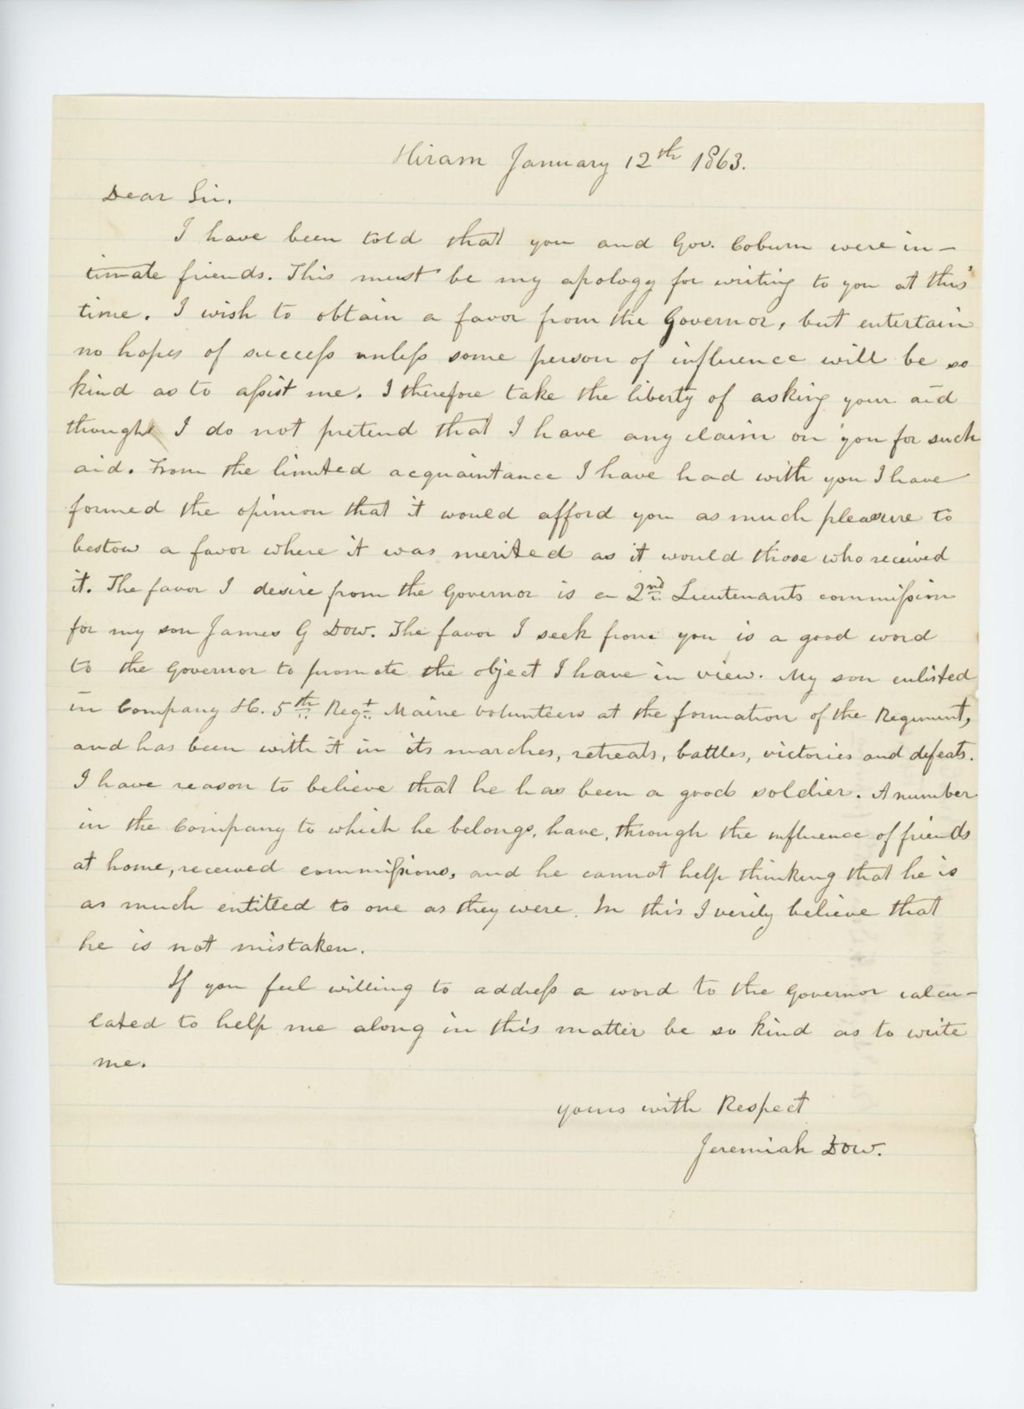 Hiram January 12th 1863.
Dear Sir.
I have been told that you and Gov. Coburn were in-
timate friends. This must be my apology for writing to you at this
time. I wish to obtain a favor from the Governor, but entertain
no hopes of success unless some person of influence will be so
kind as to assist me. I therefore take the liberty of asking your aid
though I do not pretend that I have any claim on you for such
aid. From the limited acquaintance I have had with you I have
formed the opinion that it would afford you as much pleasure to
bestow a favor where it was merited as it would those who received
it. The favor I desire from the Governor is a 2nd Lieutenants commission
for my son James G Dow. The favor I seek from you is a good word
to the Governor to promote the object I have in view. My son enlisted
in Company H. 5th Regt. Maine volunteers at the formation of the Regiment,
and has been with it in its marches, retreats, battles, victories and defeats.
I have reason to believe that he has been a good soldier. A number
in the Company to which he belongs, have, through the influence of friends
at home, received commissions, and he cannot help thinking that he is
as much entitled to one as they were. In this I verily believe that
he is not mistaken.
If you feel willing to address a word to the Governor calcu-
lated to help me along in this matter be so kind as to write
me.
yours with Respect
Jeremiah Dow.